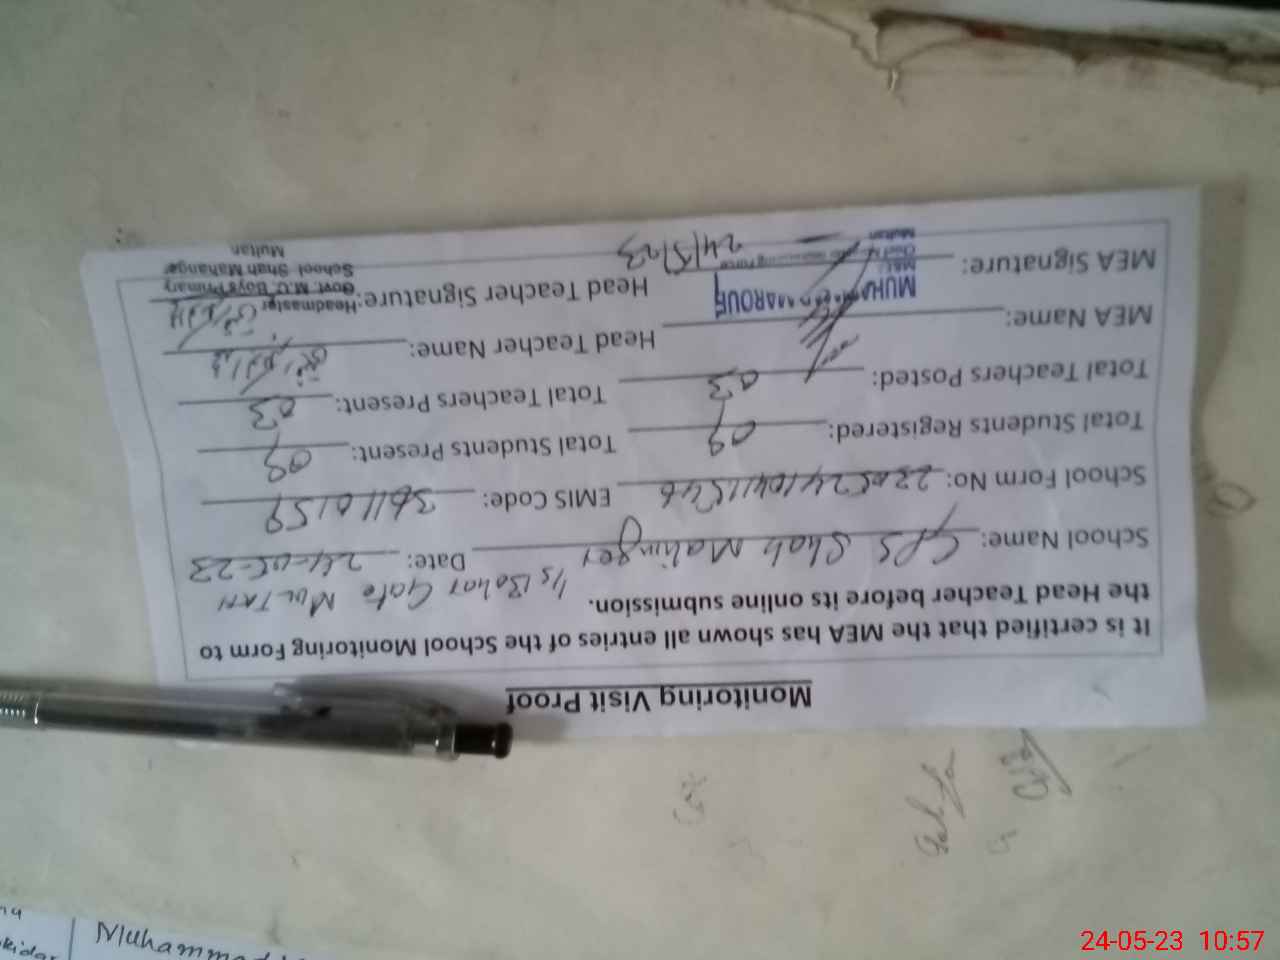 Monitoring Visit Proof
It is certified that the MEA has shown all entries of the School Monitoring Form to
the Head Teacher before its online submission.
School Name: GPS Shah Mahinger Date: 24-05-23
I/S Bohar Gate MULTAN
School Form No: EMIS Code: 36110159
Total Students Registered: 09 Total Students Present: 09
Total Teachers Posted: 03 Total Teachers Present: 03
MEA Name: Head Teacher Name:
MEA Signature: 24/5/23 Head Teacher Signature:
Multan
Headmaster
Govt. M.C. Boys Primary
School Shah Mahanger
Multan
Muhammad
24-05-23 10:57